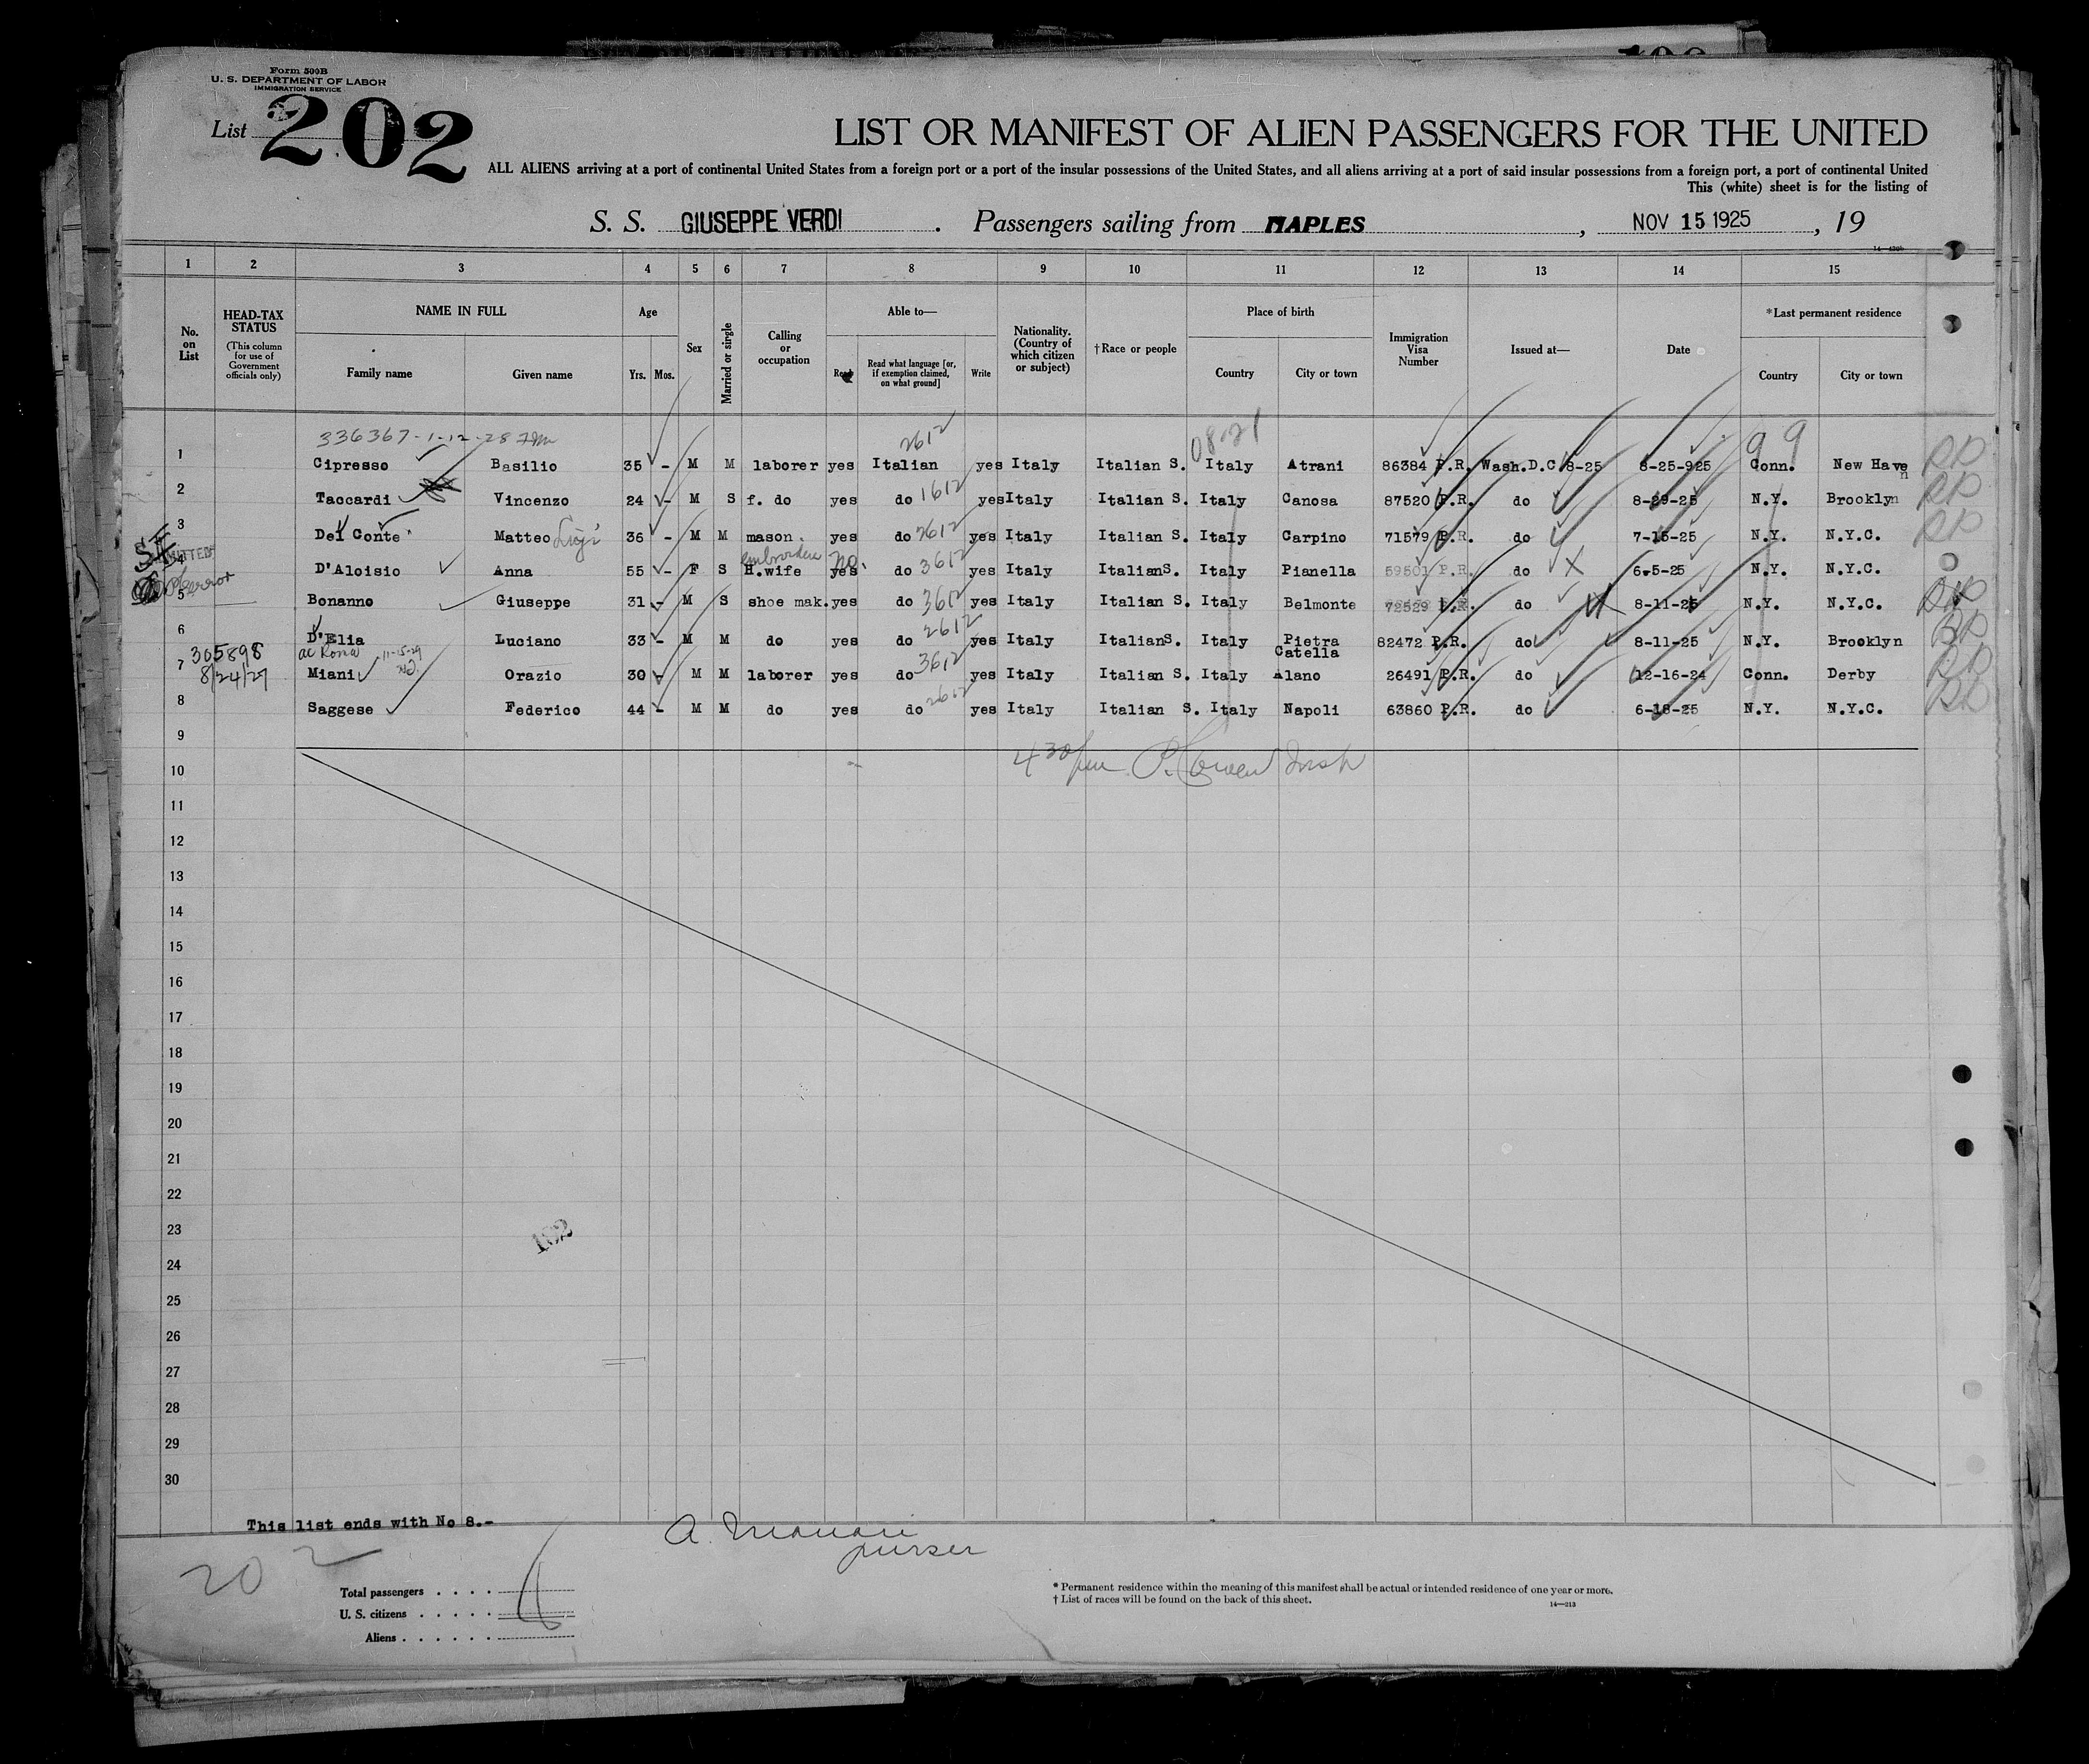 Form 500B
U. S. DEPARTMENT OF LABOR
IMMIGRATION SERVICE
List 202
LIST OR MANIFEST OF ALIEN PASSENGERS FOR THE UNITED
ALL ALIENS arriving at a port of continental United States from a foreign port or a port of the insular possessions of the United States, and all aliens arriving at a port of said insular possessions from a foreign port, a port of continental United
This (white) sheet is for the listing of
S. S. GIUSEPPE VERDI . Passengers sailing from NAPLES , NOV 15 1925 , 19
1 2 3 4 5 6 7 8 9 10 11 12 13 14 15
No. on List
HEAD-TAX STATUS
(This column for use of Government officials only)
NAME IN FULL
Family name Given name
Age
Yrs. Mos.
Sex
Married or single
Calling or occupation
Able to—
Read Read what language [or, if exemption claimed, on what ground] Write
Nationality. (Country of which citizen or subject)
†Race or people
Place of birth
Country City or town
Immigration Visa Number
Issued at—
Date
*Last permanent residence
Country City or town
336367-1-12-28 2612 08-21 99
1 Cipresso Basilio 35 - M M laborer yes Italian yes Italy Italian S. Italy Atrani 86384 P.R. Wash.D.C. 8-25 8-25-925 Conn. New Haven
2 Taccardi Vincenzo 24 - M S f. do yes do 1612 yes Italy Italian S. Italy Canosa 87520 P.R. do 8-29-25 N.Y. Brooklyn
3 Del Conte Matteo Luigi 36 - M M mason yes do 2612 yes Italy Italian S. Italy Carpino 71579 P.R. do 7-15-25 N.Y. N.Y.C.
4 D'Aloisio Anna 55 - F S H.wife yes no. do 3612 yes Italy ItalianS. Italy Pianella 59501 P.R. do 6-5-25 N.Y. N.Y.C.
5 Bonanno Giuseppe 31 - M S shoe mak. yes do 3612 yes Italy Italian S. Italy Belmonte 72529 P.R. do 8-11-25 N.Y. N.Y.C.
6 D'Elia Luciano 33 - M M do yes do 2612 yes Italy ItalianS. Italy Pietra Catella 82472 P.R. do 8-11-25 N.Y. Brooklyn
305898
8/24/27
11-15-29
7 Miani Orazio 30 - M M laborer yes do 3612 yes Italy Italian S. Italy Alano 26491 P.R. do 12-16-24 Conn. Derby
8 Saggese Federico 44 - M M do yes do 2612 yes Italy Italian S. Italy Napoli 63860 P.R. do 6-18-25 N.Y. N.Y.C.
9
4 30 pm
10
11
12
13
14
15
16
17
18
19
20
21
22
23
24
25
26
27
28
29
30
This list ends with No 8.-
purser
202
Total passengers . . . .
U. S. citizens . . . . .
Aliens . . . . . .
* Permanent residence within the meaning of this manifest shall be actual or intended residence of one year or more.
† List of races will be found on the back of this sheet.
14—213